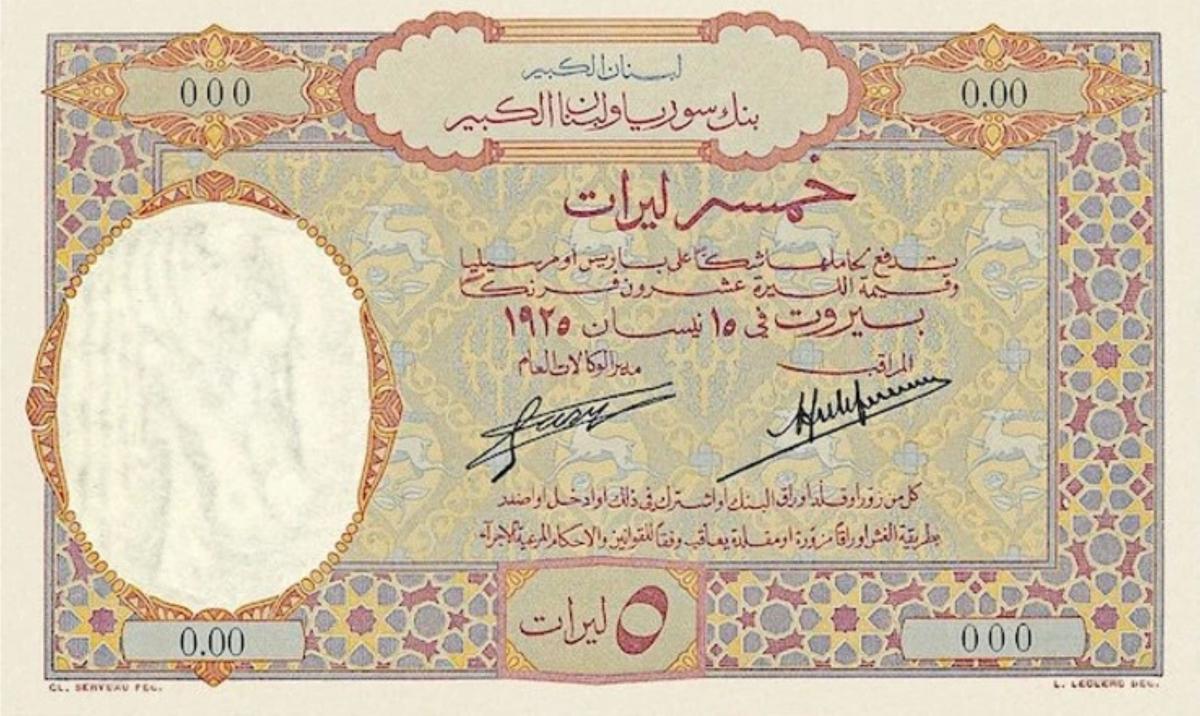 لبنان الكبير
000
0.00
بنك سوريا ولبنان الكبير
خمس ليرات
تدفع لحاملها شكًا على باريس او مرسيليا
وقيمة الليرة عشرون فرنكًا
بيروت في ١٥ نيسان ١٩٢٥
المراقب
مدير الوكالات العام
كل من زوّر او قلّد اوراق البنك او اشترك في ذلك او ادخل او اصدر
بطريقة الغش اوراقًا مزوّرة او مقلدة يعاقب وفقًا للقوانين والاحكام المرعية الاجراء
٥ ليرات
0.00
000
CL. SERVEAU FEC.
L. LECLERC DEL.